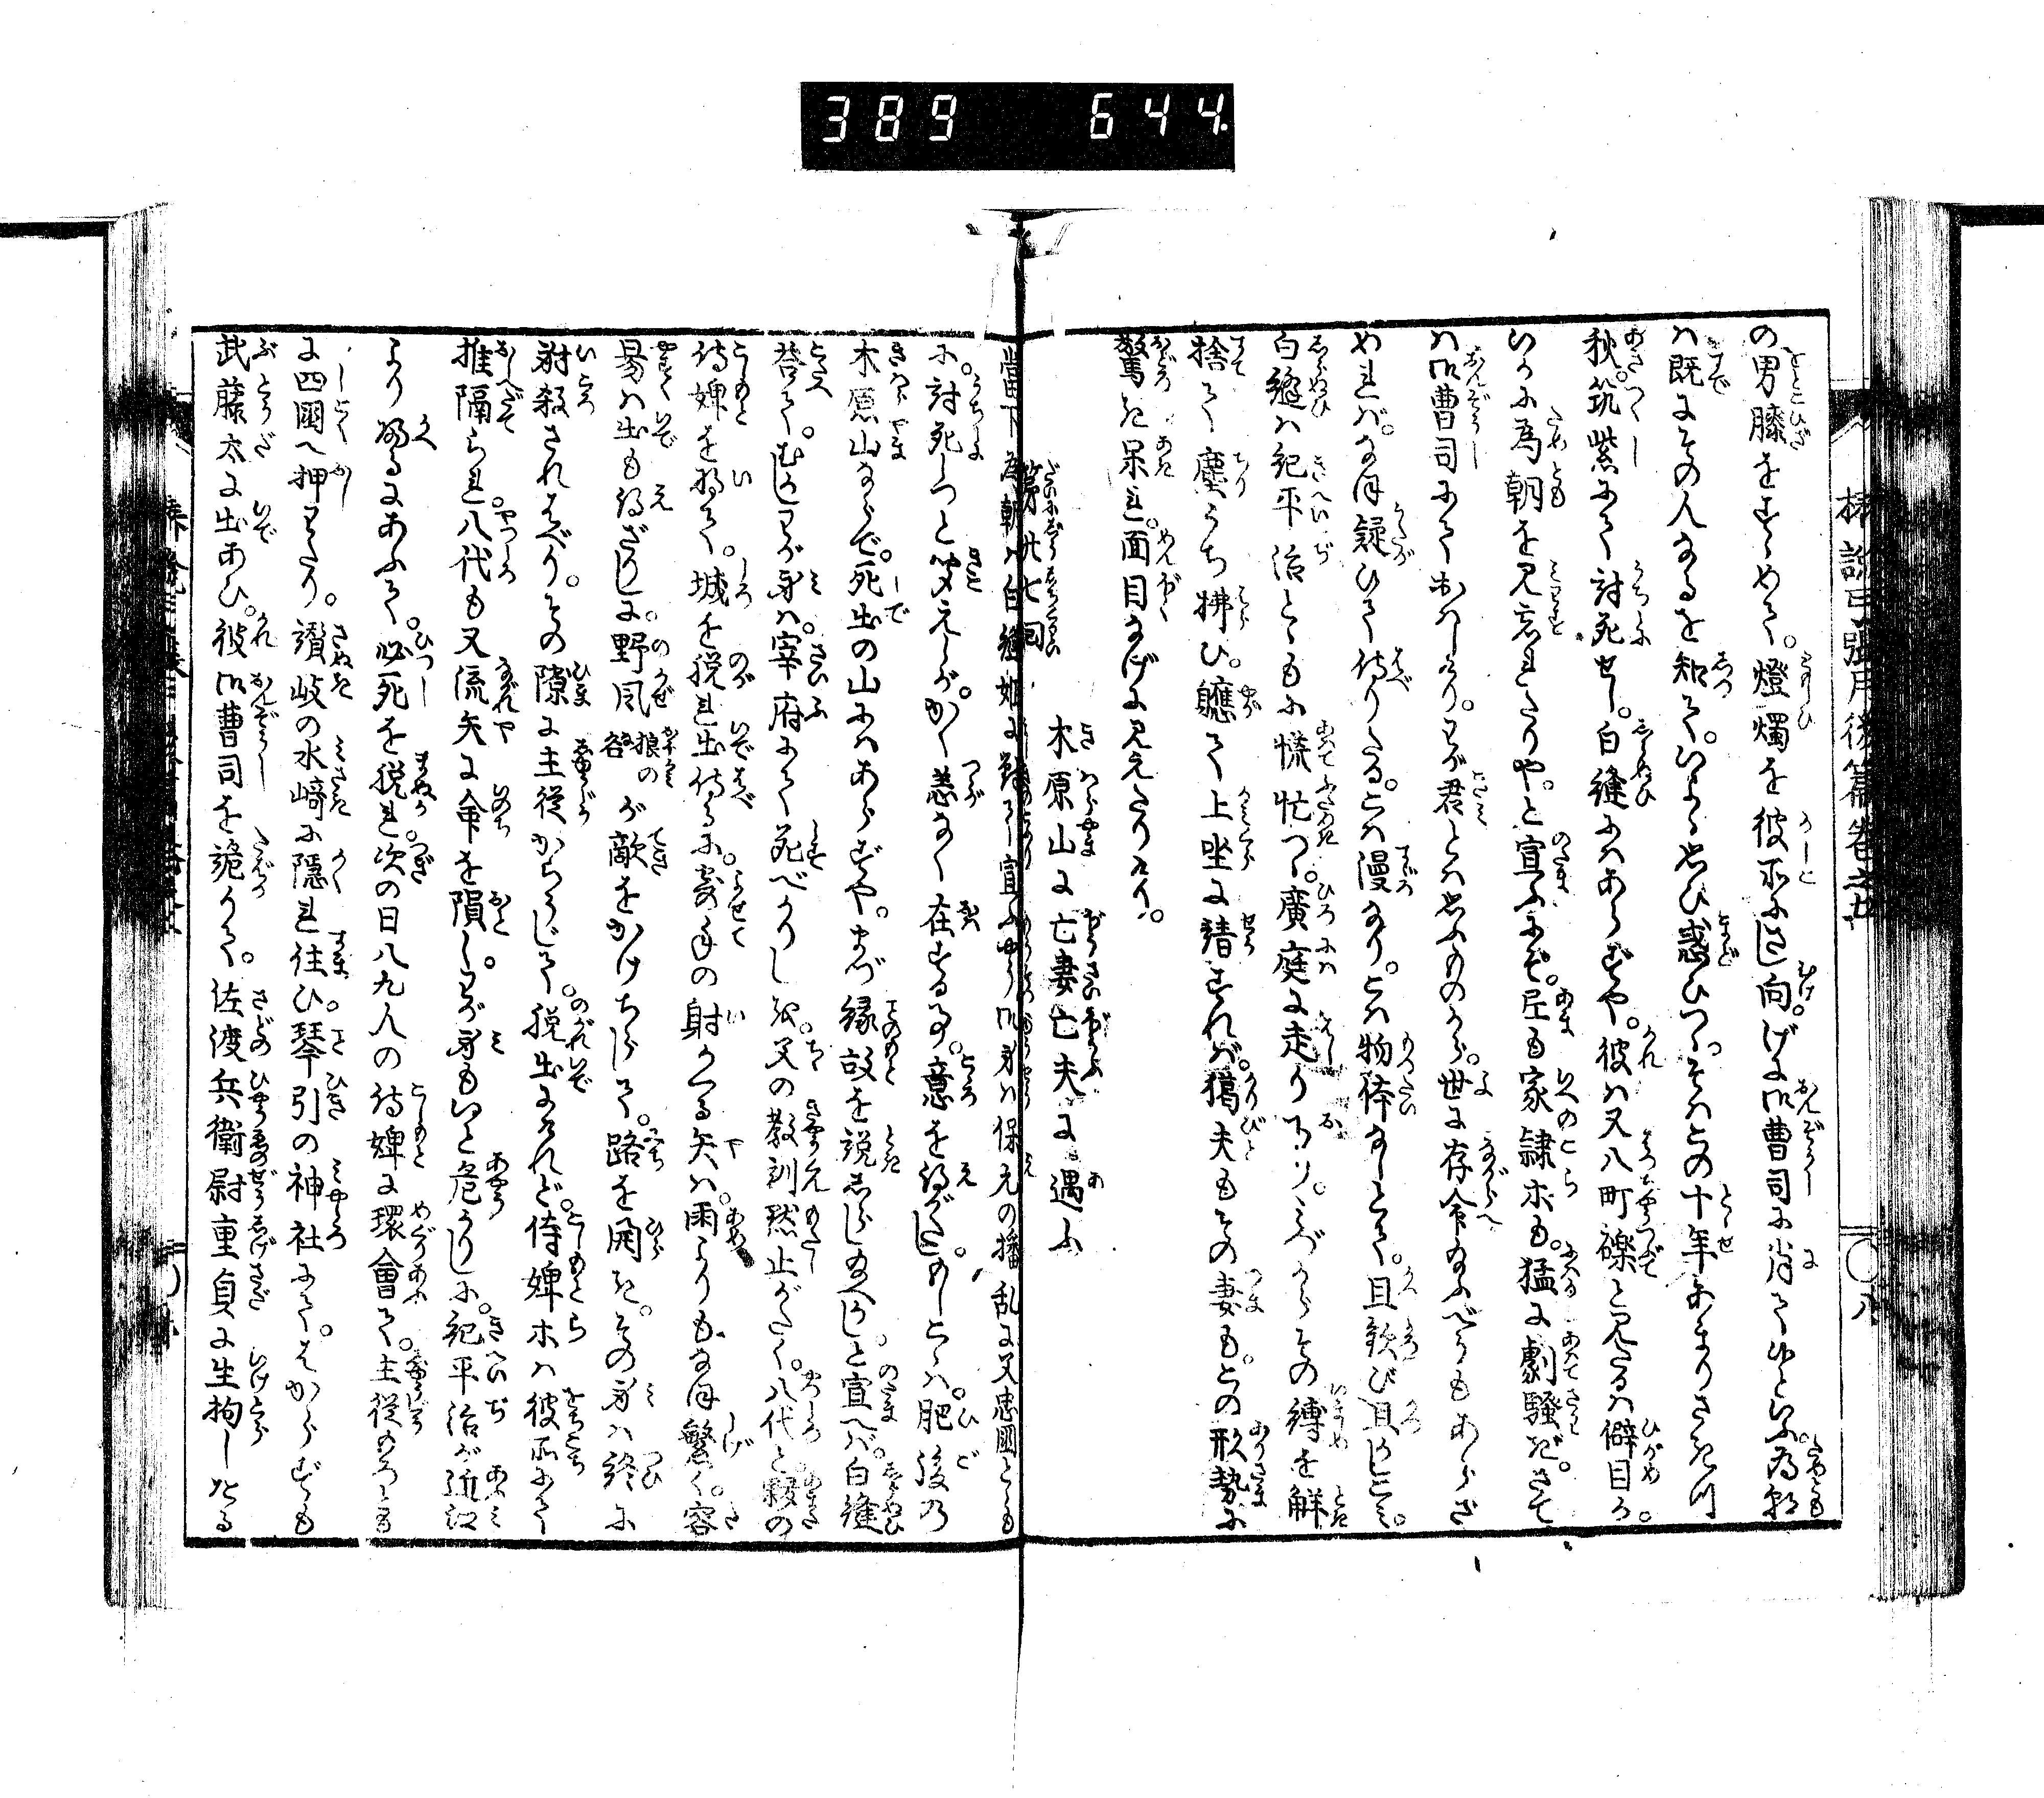 389 644
椿説弓張月後篇巻之
八
の男膝をすゝめて。燈燭を彼所にさし向。げに御曹司に肖て候といふ。為朝
は既にその人なるを知て。いよゝ思ひ惑ひつゝ。そはこの十年あまりさきの
秋。筑紫にて討死せし。白縫にはあらずや。彼は又八町礫と見たるは僻目か。
いかに為朝を見忘れたりや。と宣ふにぞ。尼も家隷ホも。猛に劇騒ぎ。さて
は御曹司にておはしけり。わが君とは思ふものから。世に存命給ふべうもあらざ
めれば。なほ疑ひて侍りたる。こは漫なり。こは物体なしとて。且歓び且かしこみ。
白縫は紀平治とゝもに慌忙つゝ。廣庭に走り下り。みづからその縛を解
捨て塵うち拂ひ。軈て上坐に請ずれば。獦夫もその妻も。この形勢に
驚き呆れ。面目なげに見えたりけり。
第廿七回 木原山に亡妻亡夫に遇ふ
當下為朝は白縫姫に對ひ宣ふやう御身は保元の播乱に又忠國とゝも
に。討死しつと聞えしが。かく恙なく在する事。意を得がたし。めしこゝは。肥後の
木原山ならで。死出の山にはあらずや。まづ縁故を説しらし給へかし。と宣へば。白縫
答て。むかしわが身は。宰府にて死べかりしを。父の教訓黙止がたく。八代と数の
侍婢を将て。城を脱れ出侍るに。寄手の射かくる矢は。雨よりもなほ繁く。容
易は出も得ざりしに。野風 狼の名 が敵をかけちらして。路を開き。その身は終に
射殺されはべり。その隙に主従からうじて。脱出にけれど。侍婢ホは彼所にて
推隔られ。八代も又流矢に命を隕し。わが身もいと危かりしに。紀平治が近江
より帰るにあふて。必死を脱れ。次の日八九人の侍婢に環會て。主従もろとも
に四國へ押わたり。讃岐の水崎に隠れ住ひ。琴引の神社にて。はからずも
武藤太に出あひ。彼御曹司を詭かりて。佐渡兵衛尉重貞に生拘したる